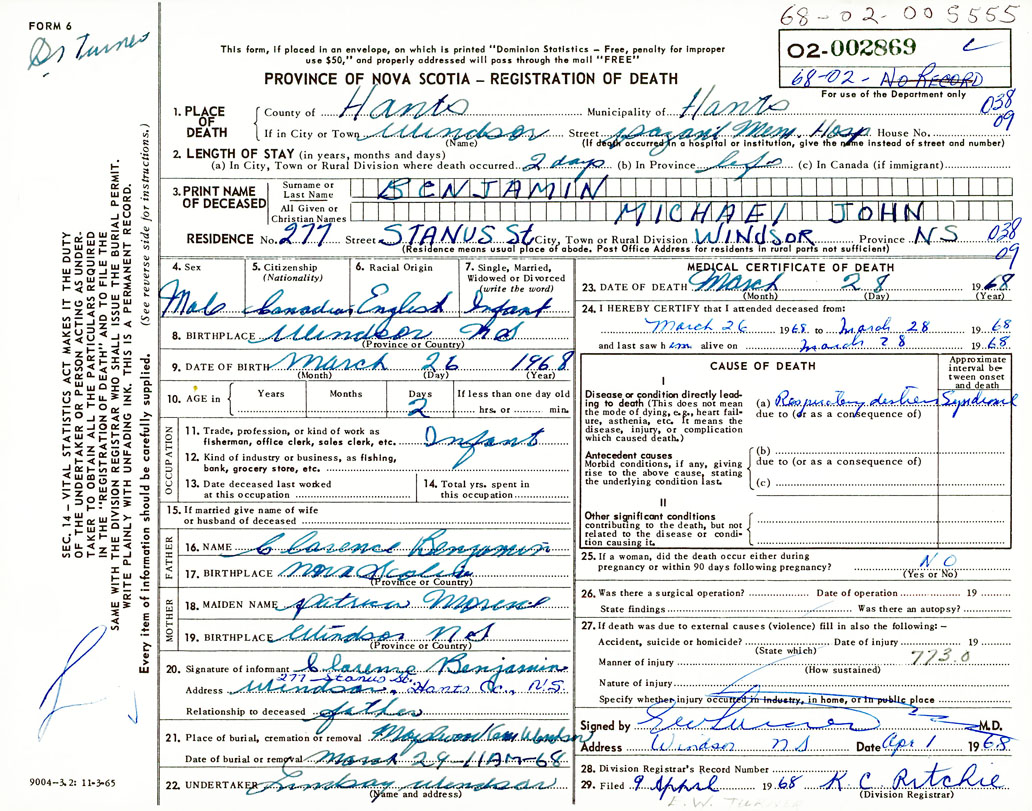 FORM 6
Dr Turner
68-02-005555
This form, if placed in an envelope, on which is printed "Dominion Statistics – Free, penalty for improper
use $50," and properly addressed will pass through the mail "FREE"
PROVINCE OF NOVA SCOTIA – REGISTRATION OF DEATH
02-002869
68-02- NO RECORD
For use of the Department only
038
09
SEC. 14 – VITAL STATISTICS ACT MAKES IT THE DUTY
OF THE UNDERTAKER OR PERSON ACTING AS UNDER-
TAKER TO OBTAIN ALL THE PARTICULARS REQUIRED
IN THE "REGISTRATION OF DEATH" AND TO FILE THE
SAME WITH THE DIVISION REGISTRAR WHO SHALL ISSUE THE BURIAL PERMIT.
WRITE PLAINLY WITH UNFADING INK. THIS IS A PERMANENT RECORD.
Every item of information should be carefully supplied. (See reverse side for instructions.)
1. PLACE OF DEATH
County of Hants Municipality of Hants
If in City or Town Windsor Street Payzant Mem. Hosp House No.
(Name) (If death occurred in a hospital or institution, give the name instead of street and number)
2. LENGTH OF STAY (in years, months and days)
(a) In City, Town or Rural Division where death occurred. 2 days (b) In Province life (c) In Canada (if immigrant)
3. PRINT NAME OF DECEASED
Surname or Last Name BENJAMIN
All Given or Christian Names MICHAEL JOHN
RESIDENCE No. 277 Street STANUS St City, Town or Rural Division WINDSOR Province NS
038
09
(Residence means usual place of abode. Post Office Address for residents in rural parts not sufficient)
4. Sex
Male
5. Citizenship (Nationality)
Canadian
6. Racial Origin
English
7. Single, Married, Widowed or Divorced (write the word)
Infant
8. BIRTHPLACE Windsor NS
(Province or Country)
9. DATE OF BIRTH March 26 1968
(Month) (Day) (Year)
10. AGE in Years Months Days 2 If less than one day old hrs. or min.
OCCUPATION
11. Trade, profession, or kind of work as
fisherman, office clerk, sales clerk, etc. Infant
12. Kind of industry or business, as fishing,
bank, grocery store, etc.
13. Date deceased last worked
at this occupation
14. Total yrs. spent in
this occupation
15. If married give name of wife
or husband of deceased
FATHER
16. NAME Clarence Benjamin
17. BIRTHPLACE Nova Scotia
(Province or Country)
MOTHER
18. MAIDEN NAME Patricia
19. BIRTHPLACE Windsor NS
(Province or Country)
20. Signature of informant Clarence Benjamin
277 Stanus St.
Address Windsor, Hants Co., N.S.
Relationship to deceased father
21. Place of burial, cremation or removal Windsor
Date of burial or removal March 29-11AM-68
22. UNDERTAKER Lindsay Windsor
(Name and address)
9004-3.2: 11-3-65
MEDICAL CERTIFICATE OF DEATH
23. DATE OF DEATH March 28 1968
(Month) (Day) (Year)
24. I HEREBY CERTIFY that I attended deceased from:
March 26 1968 to March 28 1968
and last saw him alive on March 28 1968
CAUSE OF DEATH
Approximate interval between onset and death
I
Disease or condition directly lead-
ing to death (This does not mean
the mode of dying, e.g., heart fail-
ure, asthenia, etc. It means the
disease, injury, or complication
which caused death.)
(a) Respiratory distress Syndrome
due to (or as a consequence of)
Antecedent causes
Morbid conditions, if any, giving
rise to the above cause, stating
the underlying condition last.
(b)
due to (or as a consequence of)
(c)
II
Other significant conditions
contributing to the death, but not
related to the disease or condi-
tion causing it.
25. If a woman, did the death occur either during
pregnancy or within 90 days following pregnancy? NO
(Yes or No)
26. Was there a surgical operation? Date of operation 19
State findings Was there an autopsy?
27. If death was due to external causes (violence) fill in also the following: –
Accident, suicide or homicide? Date of injury 19
(State which)
773.0
Manner of injury
(How sustained)
Nature of injury
Specify whether injury occurred in industry, in home, or in public place
Signed by M.D.
Address Windsor NS Date Apr 1 1968
28. Division Registrar's Record Number
29. Filed 9 April 1968 K C Ritchie
(Division Registrar)